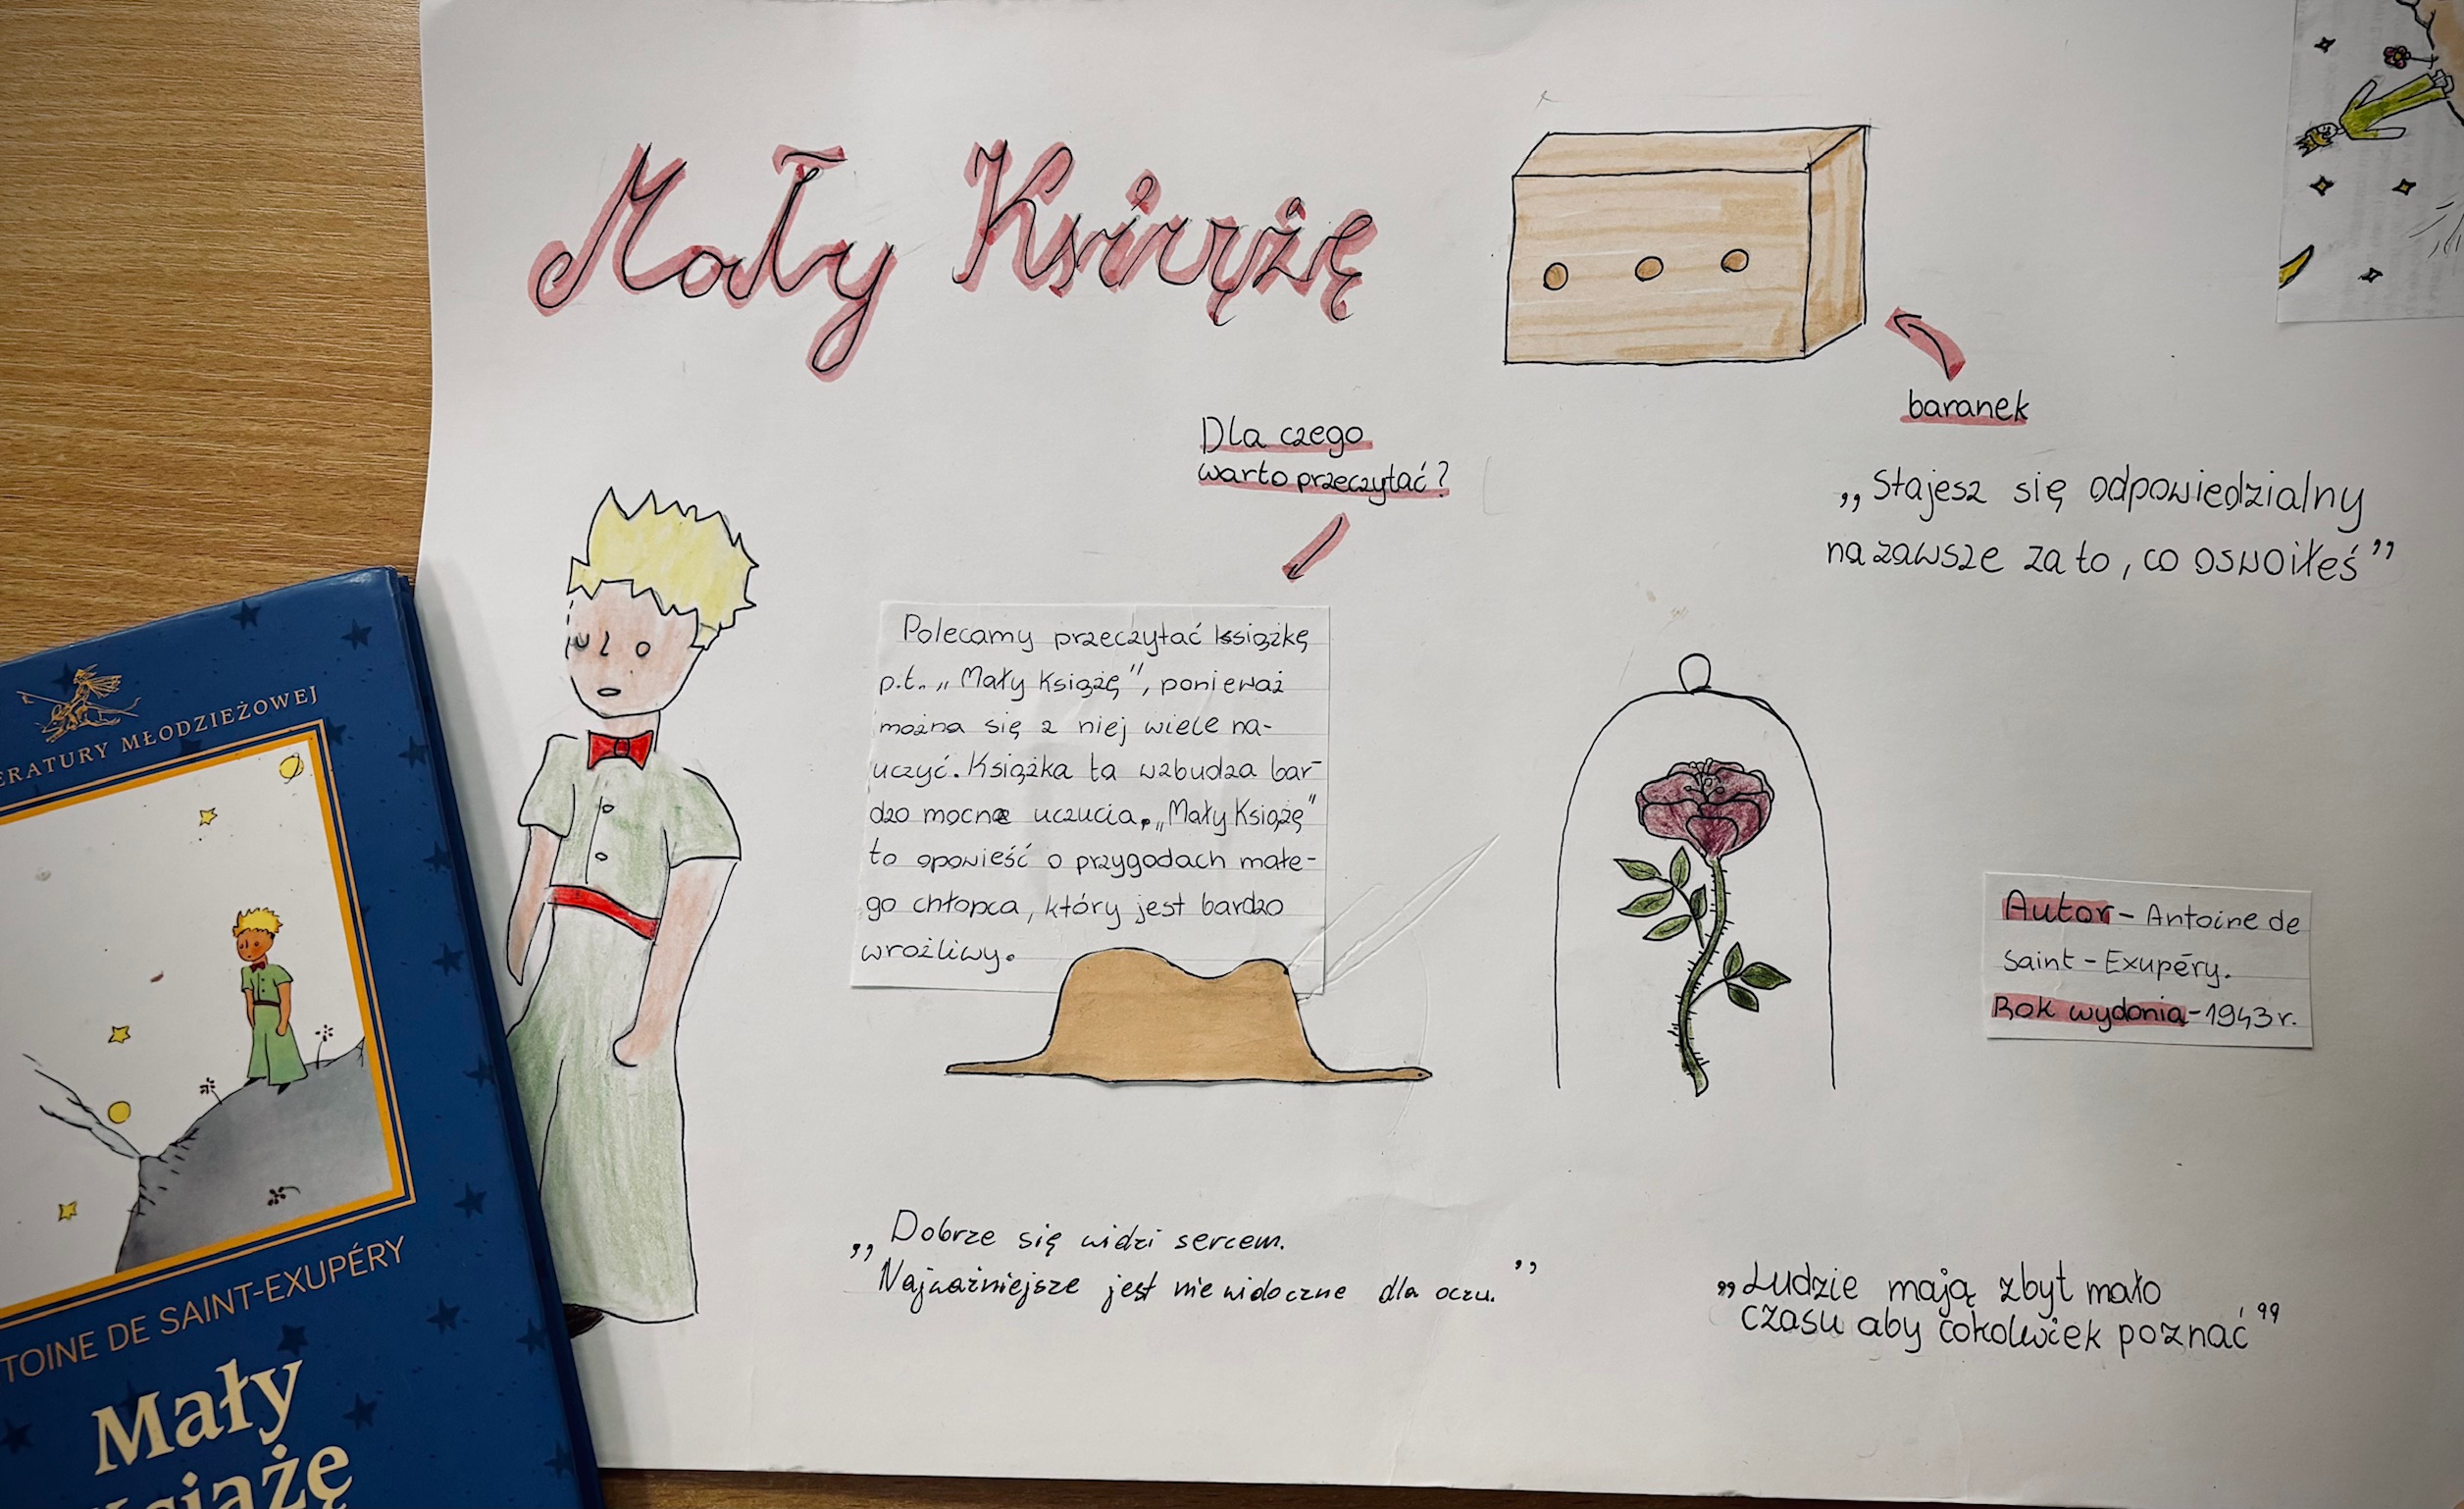 Mały Książę
baranek
Dla czego
warto przeczytać?
„Stajesz się odpowiedzialny
na zawsze za to, co oswoiłeś”
Polecamy przeczytać książkę
p.t. „Mały Książę”, ponieważ
można się z niej wiele na-
uczyć. Książka ta wzbudza bar-
dzo mocne uczucia. „Mały Książę”
to opowieść o przygodach małe-
go chłopca, który jest bardzo
wrożliwy.
Autor - Antoine de
Saint - Exupéry.
Rok wydania - 1943 r.
„Dobrze się widzi sercem.
Najważniejsze jest niewidoczne dla oczu.”
„Ludzie mają zbyt mało
czasu aby cokolwiek poznać”
ERATURY MŁODZIEŻOWEJ
TOINE DE SAINT-EXUPÉRY
Mały
Książę